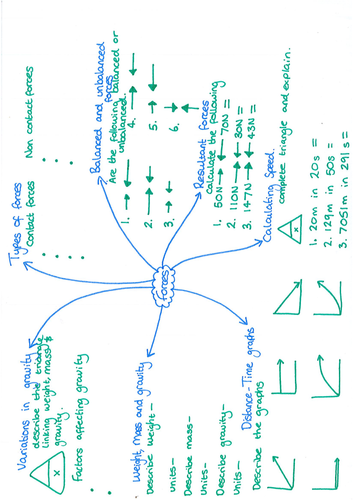 Types of forces
Contact forces
Non contact forces
Balanced and unbalanced
forces
Are the following balanced or
unbalanced.
1.
2.
3.
4.
5.
6.
Resultant forces
calculate the following
1. 50N 70N =
2. 110N 30N =
3. 147N 43N =
Calculating Speed.
complete triangle and explain.
x
1. 20m in 20s =
2. 129m in 50s =
3. 7051m in 291s =
forces
Variations in gravity
describe the triangle
linking weight, mass &
gravity.
x
Factors affecting gravity
Weight, mass and gravity
Describe weight-
units-
Describe mass-
Units-
Describe gravity-
Units-
Distance-Time graphs
Describe the graphs